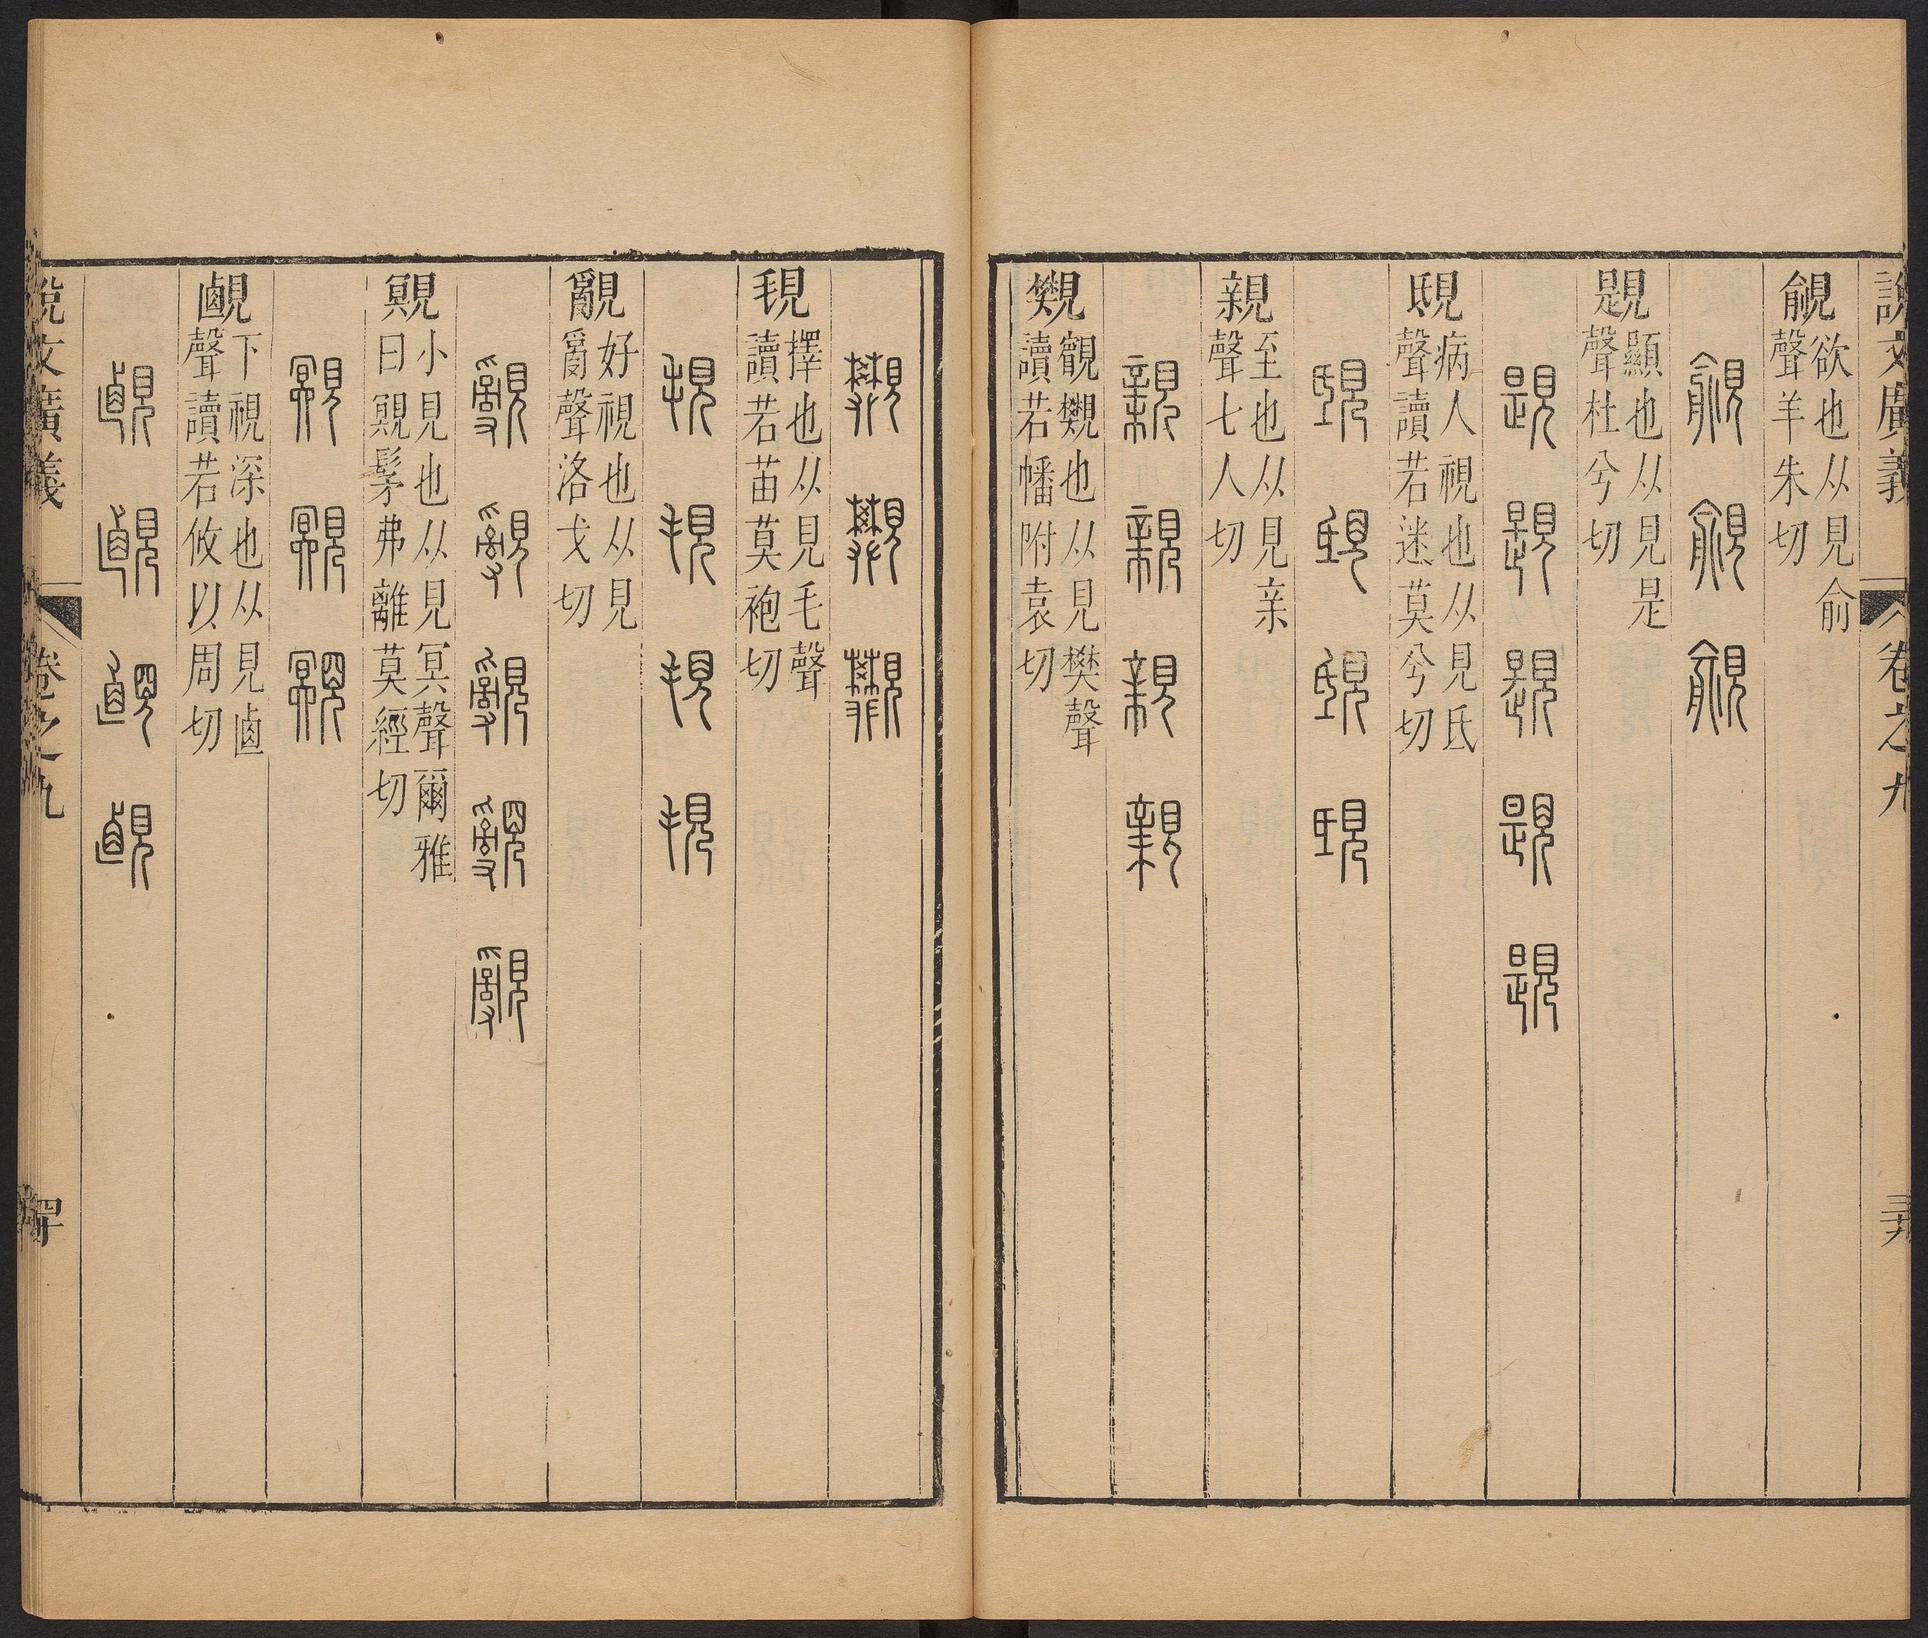 說文廣義 卷之九 三十九
覦 欲也从見俞聲羊朱切
覦 覦 覦
題 顯也从見是聲杜兮切
題 題 題 題 題
䀡 病人視也从見氐聲讀若迷莫兮切
親 至也从見亲聲七人切
親 親 親 親
䙪 觀䙪也从見樊聲讀若幡附袁切
䙪 䙪 䙪
覒 擇也从見毛聲讀若苗莫袍切
覒 覒 覒 覒
覶 好視也从見𤔔聲洛戈切
覶 覶 覶 覶 覶
覭 小見也从見冥聲爾雅曰覭髳弗離莫經切
覭 覭 覭
䚃 下視深也从見㔽聲讀若攸以周切
䚃 䚃 䚃 䚃
說文廣義 卷之九 四十